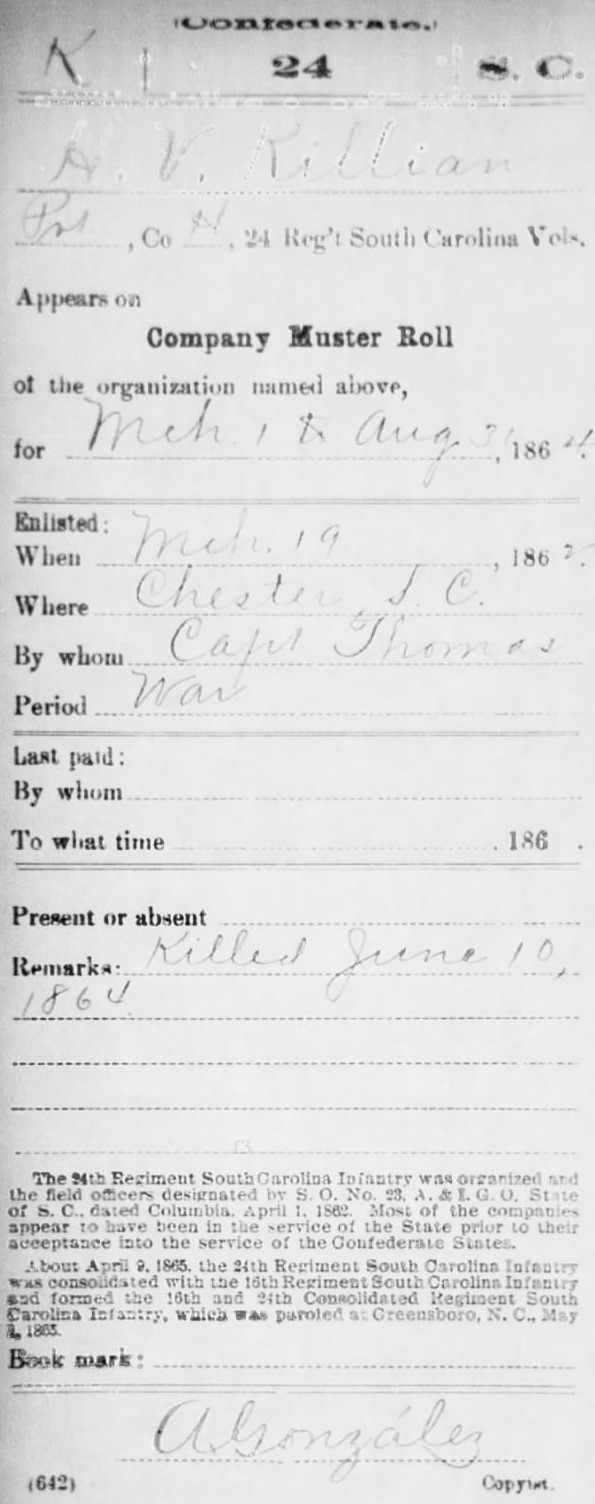 (Confederate.)
K | 24 | S. C.
H. V. Killian
Pvt, Co H, 24 Reg't South Carolina Vols.
Appears on
Company Muster Roll
of the organization named above,
for Mch. 1 to Aug 31, 1864.
Enlisted:
When Mch. 19, 1862.
Where Chester, S. C.
By whom Capt Thomas
Period War
Last paid:
By whom
To what time 186 .
Present or absent
Remarks: Killed June 10,
1864.
The 24th Regiment South Carolina Infantry was organized and
the field officers designated by S. O. No. 23, A. & I. G. O. State
of S. C., dated Columbia, April 1, 1862. Most of the companies
appear to have been in the service of the State prior to their
acceptance into the service of the Confederate States.
About April 9, 1865, the 24th Regiment South Carolina Infantry
was consolidated with the 16th Regiment South Carolina Infantry
and formed the 16th and 24th Consolidated Regiment South
Carolina Infantry, which was paroled at Greensboro, N. C., May
1, 1865.
Book mark:
A González
(642) Copyist.